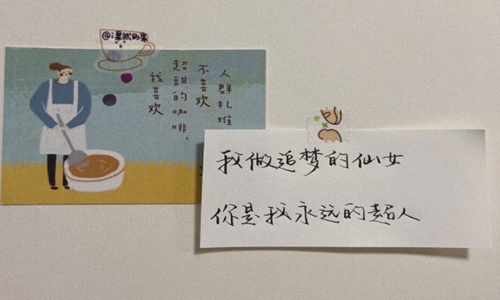 @i果燃的果
人群扎堆
不喜欢
超甜的咖啡，
我喜欢
我做追梦的仙女
你是我永远的超人